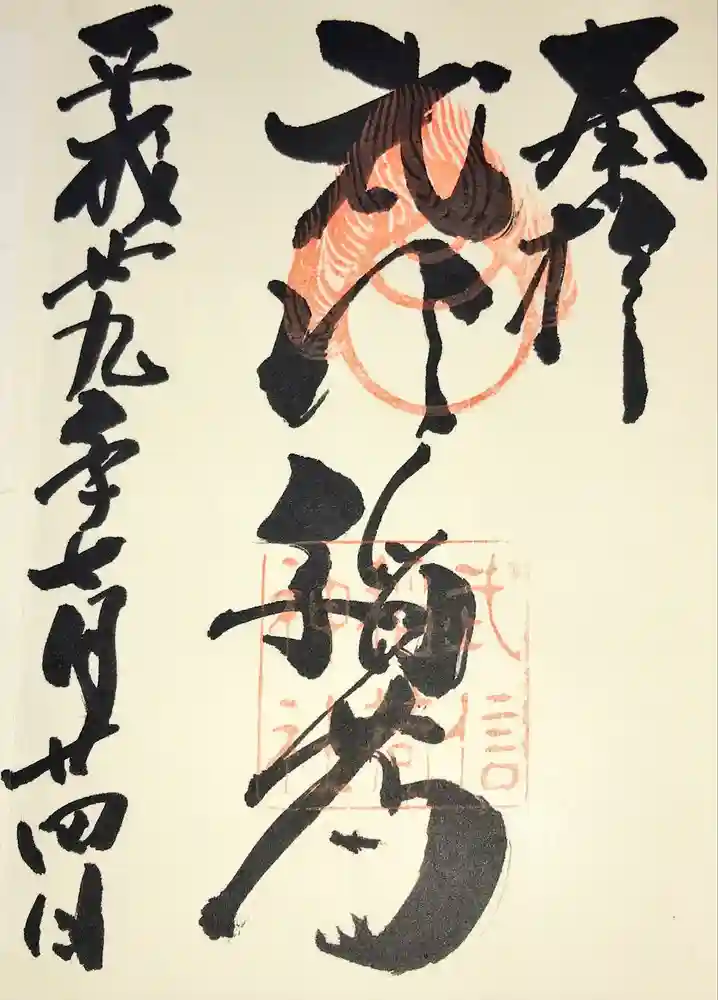 奉拝
武信稲荷
武信
稲荷
神社
平成廿九年七月廿四日